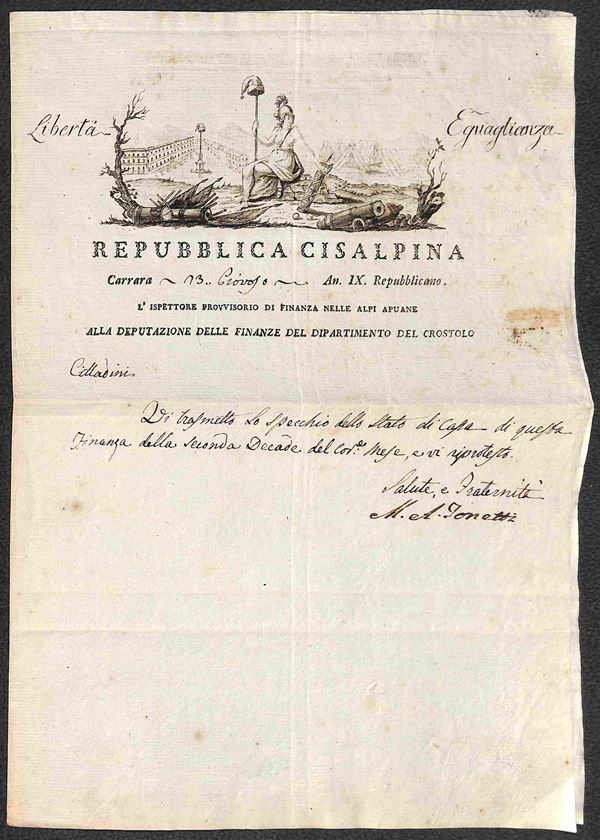 Libertà
Eguaglianza
REPUBBLICA CISALPINA
Carrara 23. Piovoso An. IX. Repubblicano.
L' ISPETTORE PROVVISORIO DI FINANZA NELLE ALPI APUANE
ALLA DEPUTAZIONE DELLE FINANZE DEL DIPARTIMENTO DEL CROSTOLO
Cittadini
Vi trasmetto lo specchio dello stato di Cassa di questa
Finanza della seconda Decade del cor.e Mese, e vi riprotesto.
Salute, e Fraternità
M. A.